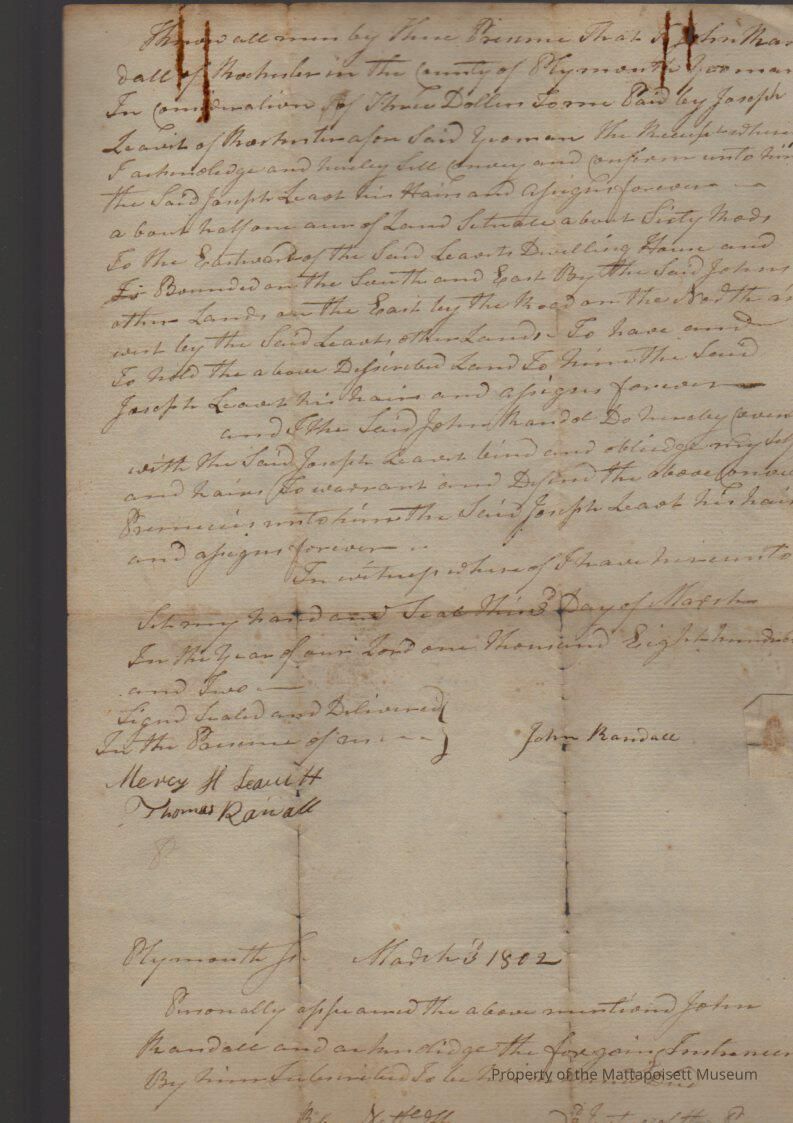 Know all men by these Presence That I John Ran
dall of Rochester in the County of Plymouth Yeoman
In Consideration of Three Dollers To me Paid by Joseph
Leavit of Rochester afore Said Yeoman the Receipt where
I acknoledge and hereby Sell Convey and Confirm unto him
the Said Joseph Leavt his Hairs and assigns forever
a bout half one acer of Land Situate a bout Sixty Rods
To the Eastward of the Said Leavts Dwelling House and
Is Bounded on the South and East By the Said Johns
other Lands on the East by the Road on the North an
west by the Said Leavts other Lands To have and
To hold the above Discribed Land To him the Said
Joseph Leavt his hairs and assigns forever
and I the Said John Randol Do hereby Coven
with the Said Joseph Leavt bind and obliedge my self
and hairs To warrant and Defend the above Conve
Premices unto him the Said Joseph Leavt his hair
and assigns forever
In witness where of I have hereunto
Set my hand and Seal this 3 Day of March
In the Year of our Lord one thousand Eight hundre
and Two
Signd Sealed and Delivered
In the Presence of us
John Randall
Mercy H Leavitt
Thomas Ranall
Plymouth Ss. March 3 1802
Personally appeared the above mentiond John
Randall and acknolidge the foregoing Instrumen
By him Subscribed To be his
Property of the Mattapoisett Museum